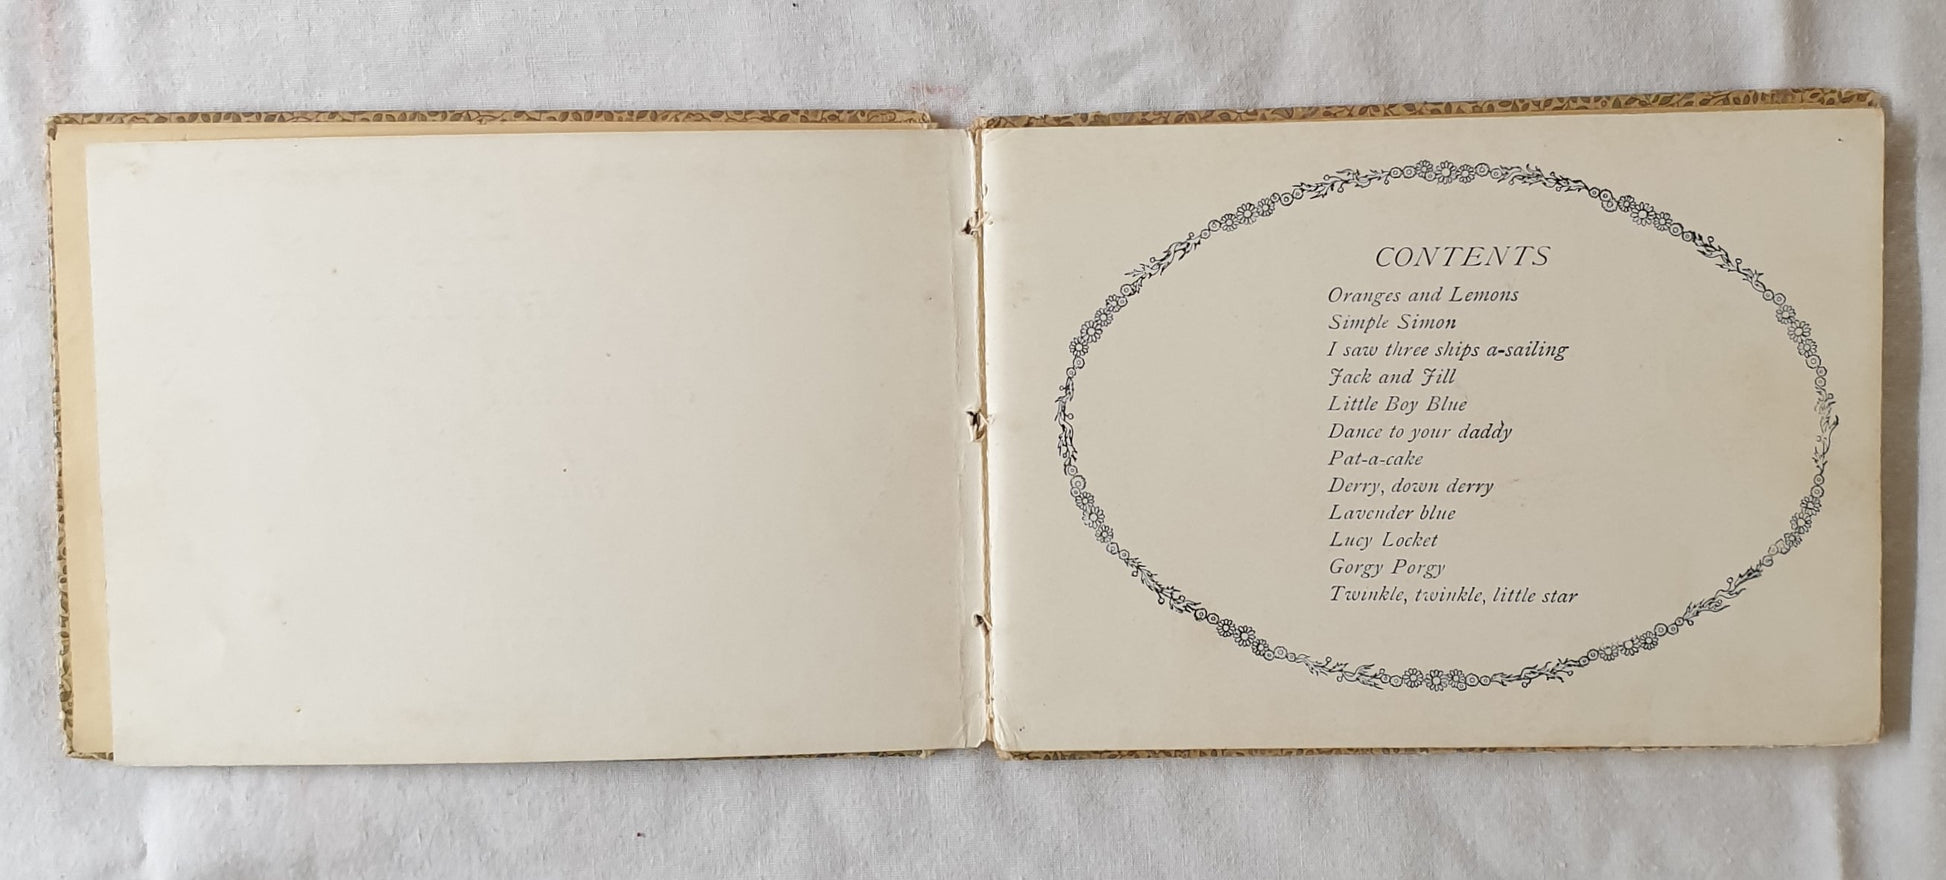 CONTENTS
Oranges and Lemons
Simple Simon
I saw three ships a-sailing
Jack and Jill
Little Boy Blue
Dance to your daddy
Pat-a-cake
Derry, down derry
Lavender blue
Lucy Locket
Gorgy Porgy
Twinkle, twinkle, little star